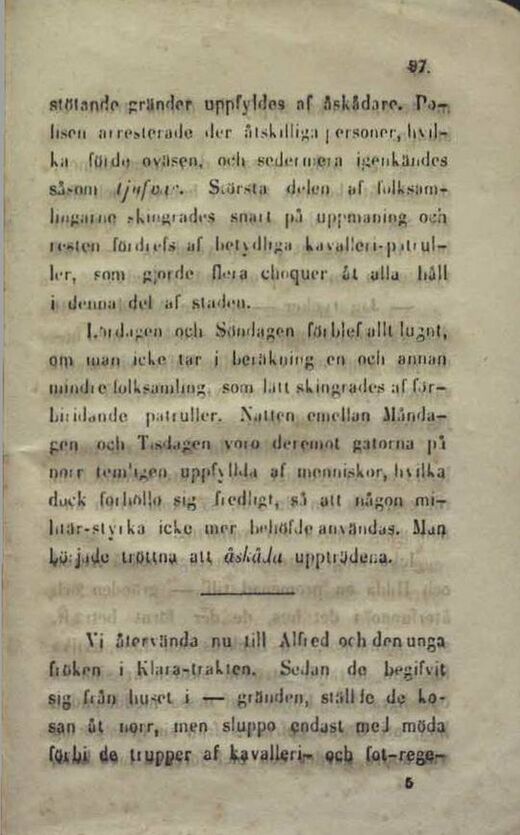 97.
stötande gränder uppfyldes af åskådare. Po-
lisen arresterade der åtskilliga personer, hvil-
ka förde oväsen, och sedermera igenkändes
såsom tjufvar. Största delen af folksam-
lingarne skingrades snart på uppmaning och
resten fördrefs af betydliga kavalleri-patrul-
ler, som gjorde flera choquer åt alla håll
i denna del af staden.
Lördagen och Söndagen förblef allt lugnt,
om man icke tar i beräkning en och annan
mindre folksamling, som lätt skingrades af för-
biridande patruller. Natten emellan Månda-
gen och Tisdagen voro deremot gatorna på
norr temligen uppfyllda af menniskor, hvilka
dock förhöllo sig fredligt, så att någon mi-
litär-styrka icke mer behöfde användas. Man
började tröttna att åskåda uppträdena.
Vi återvända nu till Alfred och den unga
fröken i Klara-trakten. Sedan de begifvit
sig från huset i — gränden, ställde de ko-
san åt norr, men sluppo endast med möda
förbi de trupper af kavalleri- och fot-rege-
5